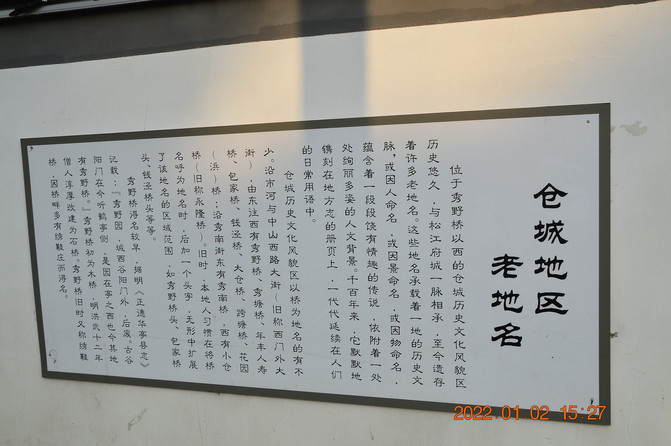 仓城地区
老地名
位于秀野桥以西的仓城历史文化风貌区
历史悠久，与松江府城一脉相承，至今遗存
着许多老地名。这些地名承载着一地的历史文
脉，或因人命名，或因景命名，或因物命名，
蕴含着一段段饶有情趣的传说，依附着一处
处绚丽多姿的人文背景。千百年来，它默默地
镌刻在地方志的册页上，一代代延续在人们
的日常用语中。
仓城历史文化风貌区以桥为地名的有不
少。沿市河与中山西路大街（旧称西门外大
街），由东往西有秀野桥、秀塘桥、年丰人寿
桥、包家桥、钱泾桥、大仓桥、跨塘桥、花园
（浜）桥；沿秀南街东有秀南桥，西有小仓
桥（旧称永隆桥）。旧时，本地人习惯在将桥
名呼为地名时，后加一个头字，无形中扩展
了该地名的区域范围，如秀野桥头、包家桥
头、钱泾桥头等等。
秀野桥得名较早，据明《正德华亭县志》
记载：“秀野园，城西谷阳门外，后废。古谷
阳门在今听鹤亭侧，是园在亭之西也今其地
有秀野桥。”秀野桥初为木桥，明洪武十二年
僧人淳厚改建为石桥。秀野桥旧时又称绣鞋
桥，因桥畔多有绣鞋庄而得名。
2022 01 02 15:27